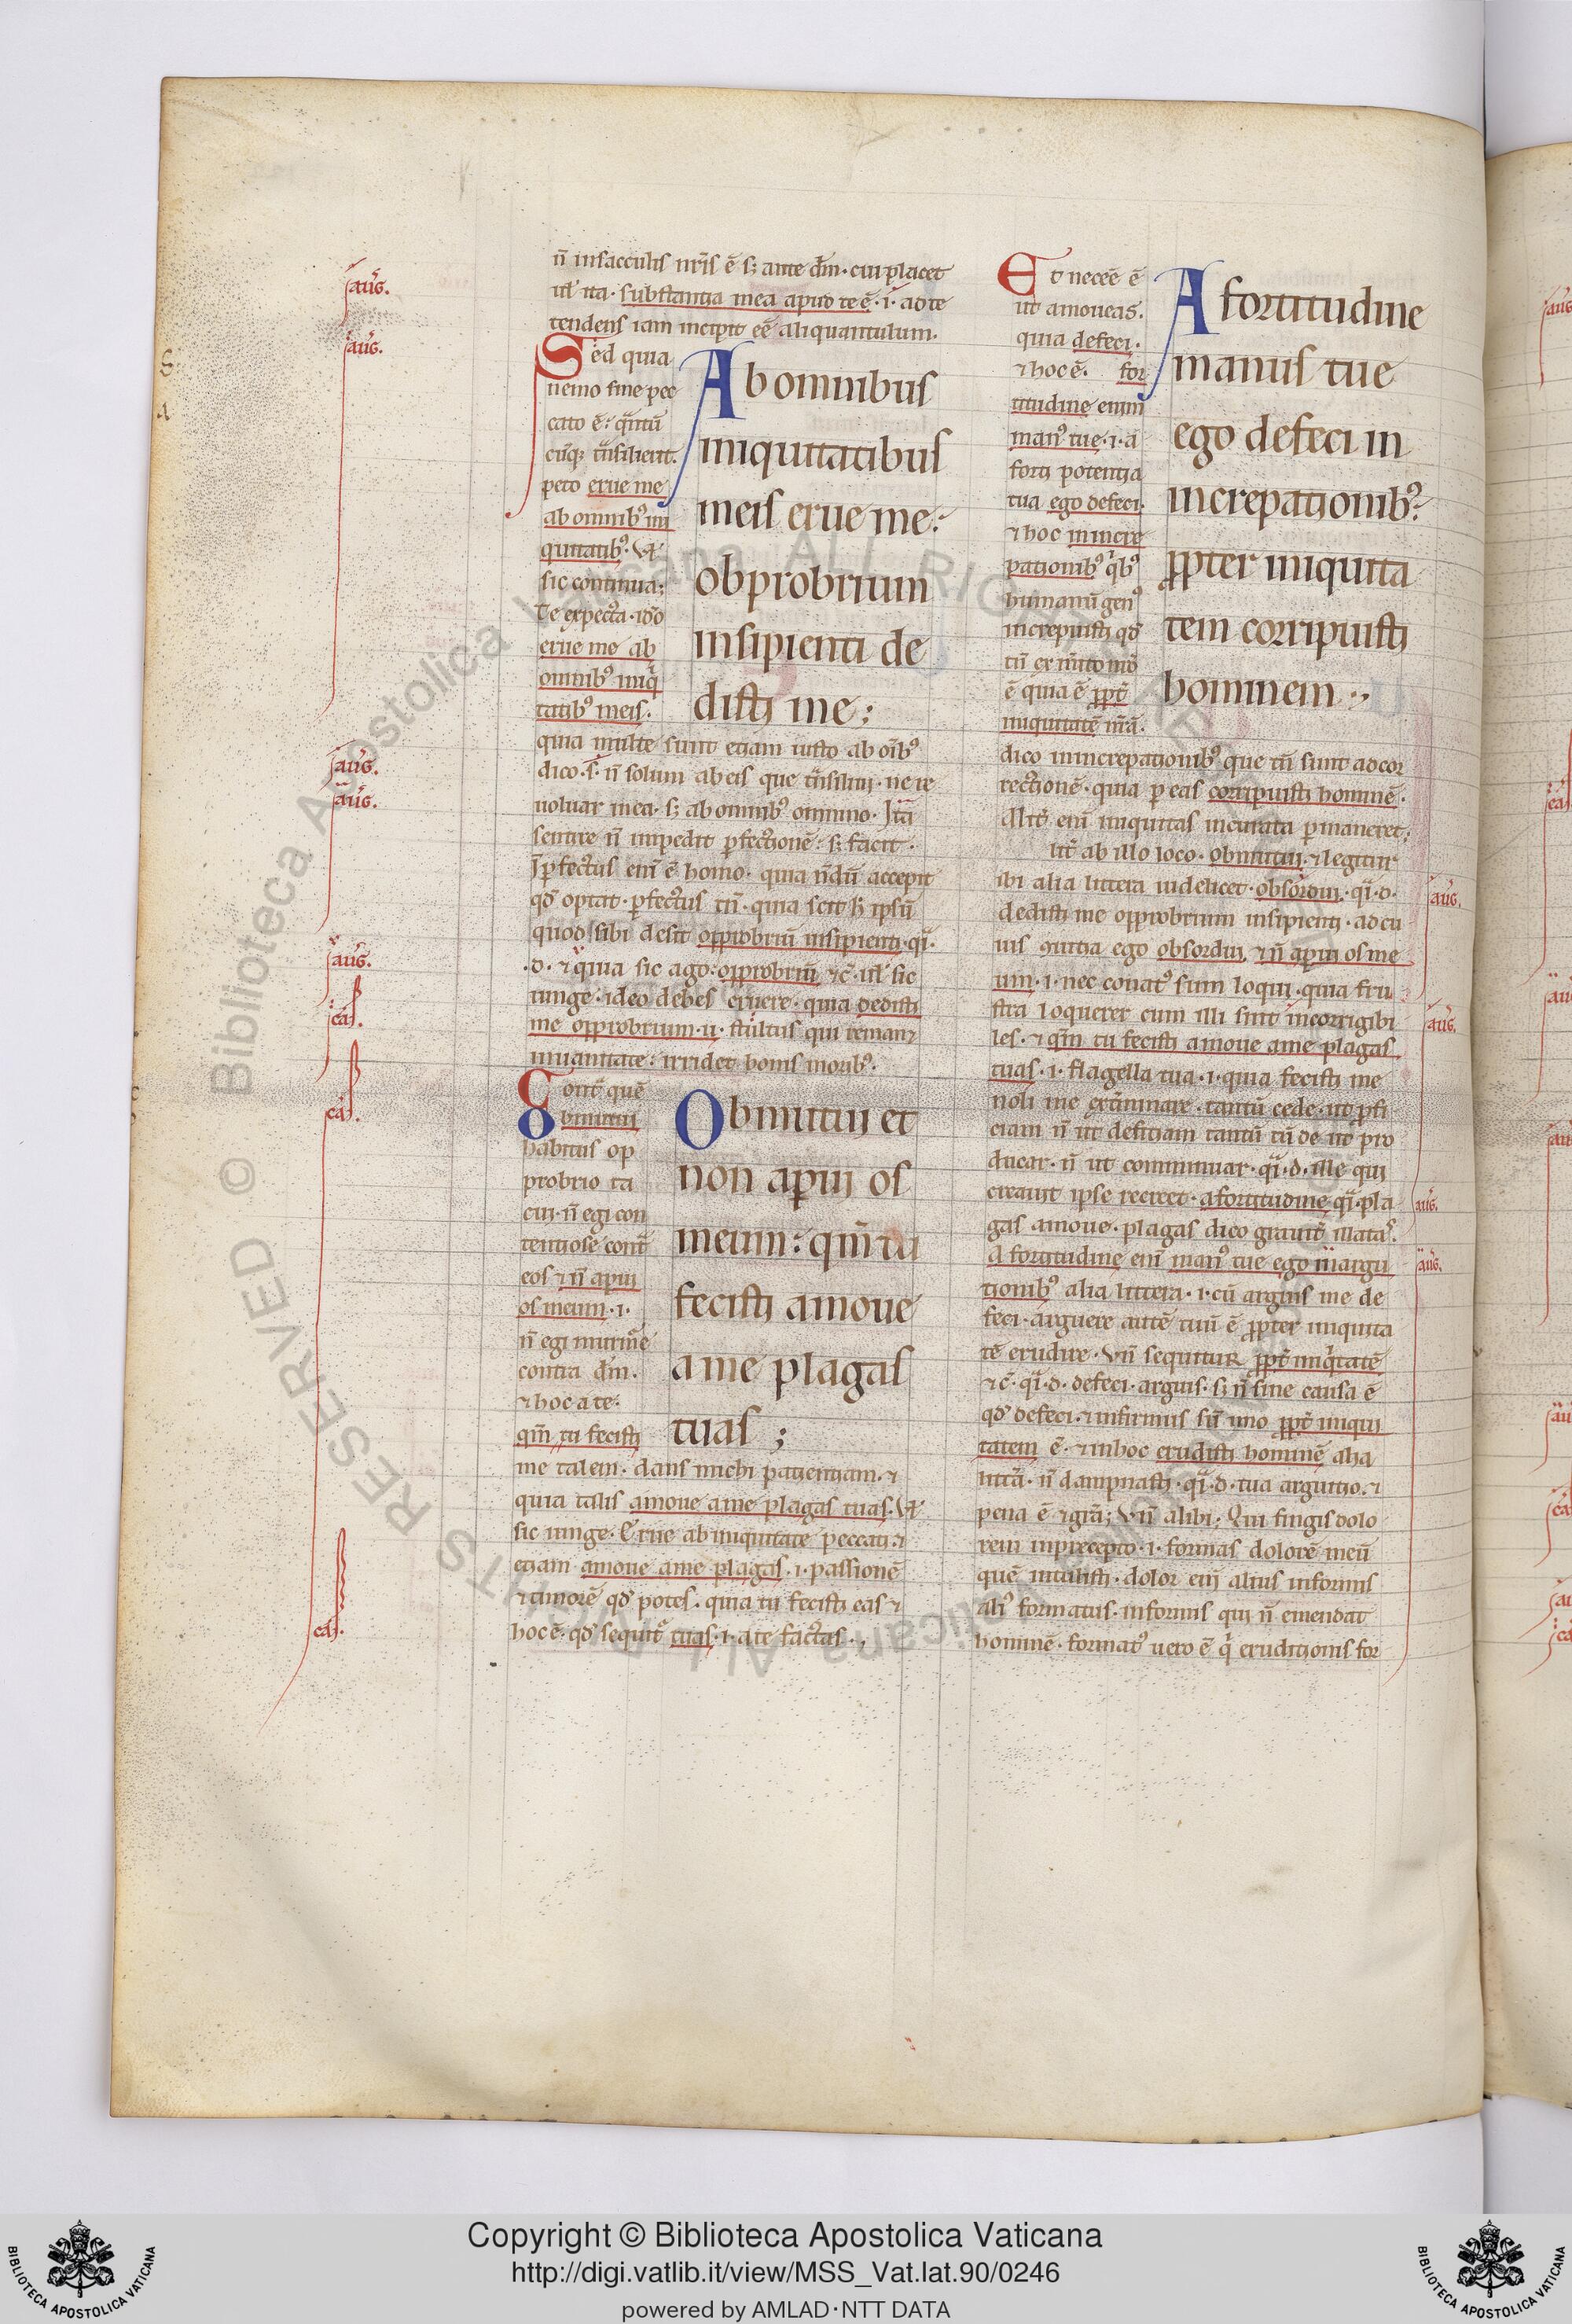 n̄ insacculis nr̄is ē s; ante dm̄. cui placet
ul̄ ita. substantia mea apud te ē .i. ad te
tendens iam incipit eē aliquantulum.
Sed quia
nemo sine pec
cato ē: q̄ntū
cūq; t̄nsilient.
peto erue me
ab omnibꝰ ini
quitatibꝰ. Vł
sic continua;
Te expecta. idō
erue me ab
omnibꝰ iniq̄
tatibꝰ meis.
Ab omnibus
iniquitatibus
meis erue me:
obprobrium
insipienti de
disti me;
quia multe sunt etiam iusto ab oībꝰ
dico .s. n̄ solum ab eis que t̄nsilui. ne re
uoluar in ea. s; ab omnibꝰ omnino. Ita
sentire n̄ impedit ꝑfectionē: s; facit.
Iꝑfectus enī ē homo. quia n̄dū accepit
qd̄ optat. ꝑfectus tn̄. quia scit h̄ ipsū
quod sibi desit opprobriū insipienti. q̄i.
.d. ⁊ quia sic ago: opprobriū ⁊c̄ ul̄ sic
iunge. ideo debes eruere. quia dedisti
me opprobrium. u. stultus qui reman;
in uanitate: irridet bonis moribꝰ.
Cont̄ quē
Obmutui
habitus op
probrio ta
cui. n̄ egi con
tentiose cont̄
eos ⁊ n̄ aperui
os meum .i.
n̄ egi murm̄e
contra dm̄.
⁊ hoc a te.
qm̄ tu fecisti
Obmutui et
non aperui os
meum: qm̄ tu
fecisti amoue
a me plagas
tuas;
me talem. dans michi patientiam. ⁊
quia talis amoue a me plagas tuas. Vł
sic iunge. Erue ab iniquitate peccati. ⁊
etiam amoue a me plagas .i. passionē
⁊ timorē qd̄ potes. quia tu fecisti eas ⁊
hoc ē. qd̄ sequit̄ tuas .i. a te factas.
Et neceē ē
ut amoueas.
quia defeci.
⁊ hoc ē. for
titudine enim
manꝰ tue .i. a
forti potentia
tua ego defeci.
⁊ hoc in incre
pationibꝰ q̄bꝰ
humanū genꝰ
increpuisti qd̄
ē quia ē ꝓpt̄
iniquitatē n̄rā.
A fortitudine
manus tue
ego defeci in
increpationibꝰ:
ꝓpter iniquita
tem corripuisti
hominem.
dico in increpationibꝰ que tn̄ sunt ad cor
rectionē. quia ꝑ eas corripuisti hominē.
Alit̄ enī iniquitas incurata ꝑmaneret;
lit̄ ab illo loco. obmutui. ⁊ legitur
ibi alia littera uidelicet. obsordui. q̄i .d.
dedisti me opprobrium insipienti. ad cu
ius ꝯuitia ego obsordui, ⁊ n̄ aperui os me
um .i. nec conatꝰ sum loqui. quia fru
stra loquerer cum illi sint incorrigibi
les. ⁊ qm̄ tu fecisti amoue a me plagas
tuas .i. flagella tua .i. quia fecisti me
noli me ext̄minare. tantū cede. ut ꝓfi
ciam n̄ ut deficiam tantū tn̄de ut pro
ducar. n̄ ut comminuar. q̄i .d. ille qui
creauit ipse recreet. a fortitudine q̄i. pla
gas amoue. plagas dico grauit̄ illatas.
A fortitudine enī manꝰ tue ego in argu
tionibꝰ alia littera .i. cū arguis me de
feci. arguere autē tuū ē ꝓpter iniquita
tē erudire. Vn̄ sequitur ꝓpt̄ iniq̄tatē
⁊c̄. q̄i .d. defeci. arguis. s; n̄ sine causa ē
qd̄ defeci. ⁊ infirmus sū. imo ꝓpt̄ iniqui
tatem ē. ⁊ in hoc erudisti hominē alia
litt̄a. n̄ dampnasti. q̄i .d. tua argutio. ⁊
pena ē ⁊ gr̄a; Vn̄ alibi; Qui fingis dolo
rem in precepto .i. formas dolorē meū
quē intulisti. dolor enī alius informis
aliꝰ formatus. informis qui n̄ emendat
hominē. formatꝰ uero ē q̄ eruditionis for
aug̃.
aug̃.
aug̃.
aug̃.
aug̃.
cas̃.
cas̃.
cas̃.
aug̃.
aug̃.
aug̃.
aug̃.
Copyright © Biblioteca Apostolica Vaticana
http://digi.vatlib.it/view/MSS_Vat.lat.90/0246
powered by AMLAD·NTT DATA
BIBLIOTECA APOSTOLICA VATICANA
BIBLIOTECA APOSTOLICA VATICANA